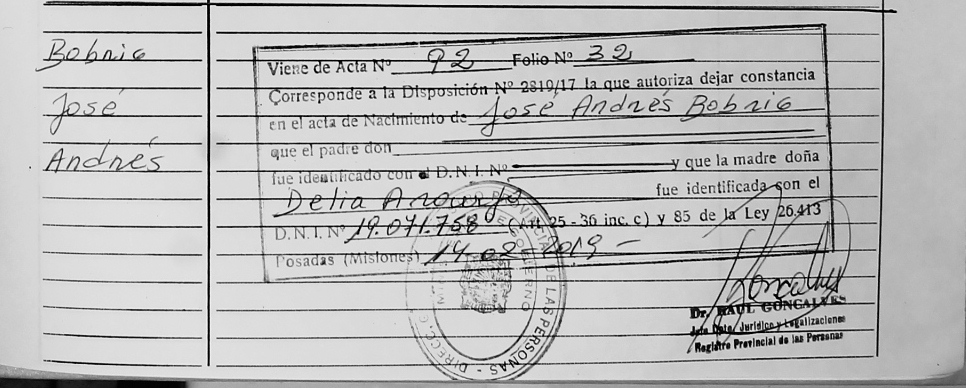 Bobrie
José
Andrés
Viene de Acta Nº 92 Folio Nº 32
Corresponde a la Disposición Nº 2819/17 la que autoriza dejar constancia
en el acta de Nacimiento de José Andrés Bobrie
que el padre don
fue identificado con el D.N.I. Nº y que la madre doña
Delia fue identificada con el
D.N.I. Nº 19.071.758 (Art. 25-36 inc. c) y 85 de la Ley 26.413
Posadas (Misiones) 14-02-2019-
DIRECC. PROVINCIAL DE LAS PERSONAS
Dr. RAUL GONCALVES
Jefe Dpto. Jurídico y Legalizaciones
Registro Provincial de las Personas